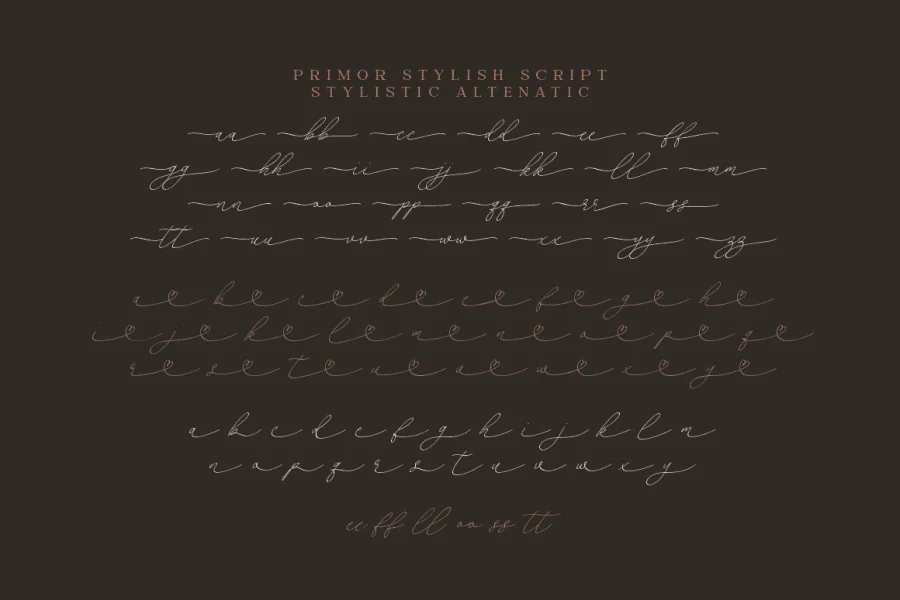 PRIMOR STYLISH SCRIPT
STYLISTIC ALTENATIC
aa bb cc dd ee ff
gg hh ii jj kk ll mm
nn oo pp qq rr ss
tt uu vv ww xx yy zz
a b c d e f g h
i j k l m n o p q
r s t u v w x y
a b c d e f g h i j k l m
n o p q r s t u v w x y
ee ff ll oo ss tt